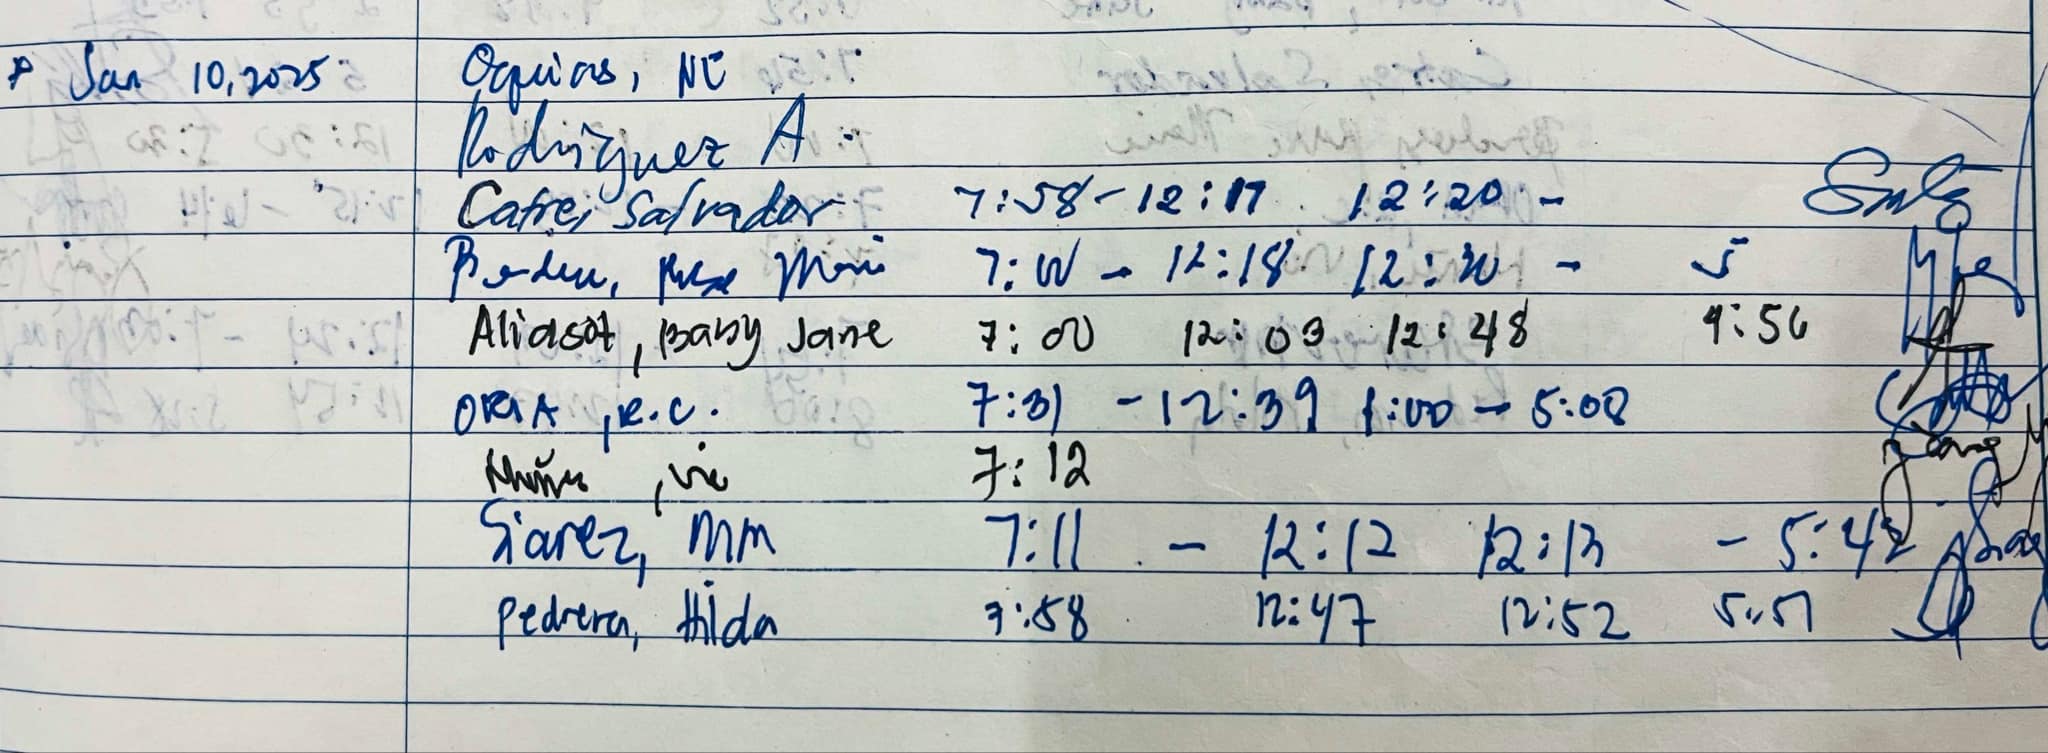 Jan 10, 2025 Ocquias, NE
Rodriguez A.
Catre, Salvador 7:58 - 12:17 12:20 -
Rose Marie 7:00 - 12:18 12:30 - 5
Aliasot, Baby Jane 7:00 12:09 12:48 4:56
ORIA, R.C. 7:31 - 12:39 1:00 - 5:08
Vic 7:12
Siarez, MM 7:11 - 12:12 12:13 - 5:42
Pedrera, Hilda 7:58 12:47 12:52 5:51